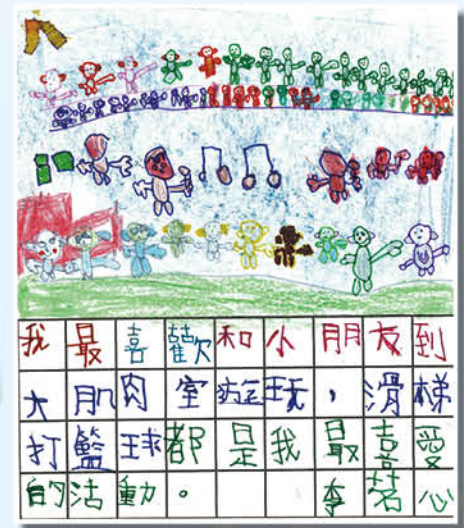 我最喜歡和小朋友到
大肌肉室遊玩，滑梯
打籃球都是我最喜愛
的活動。李茗心